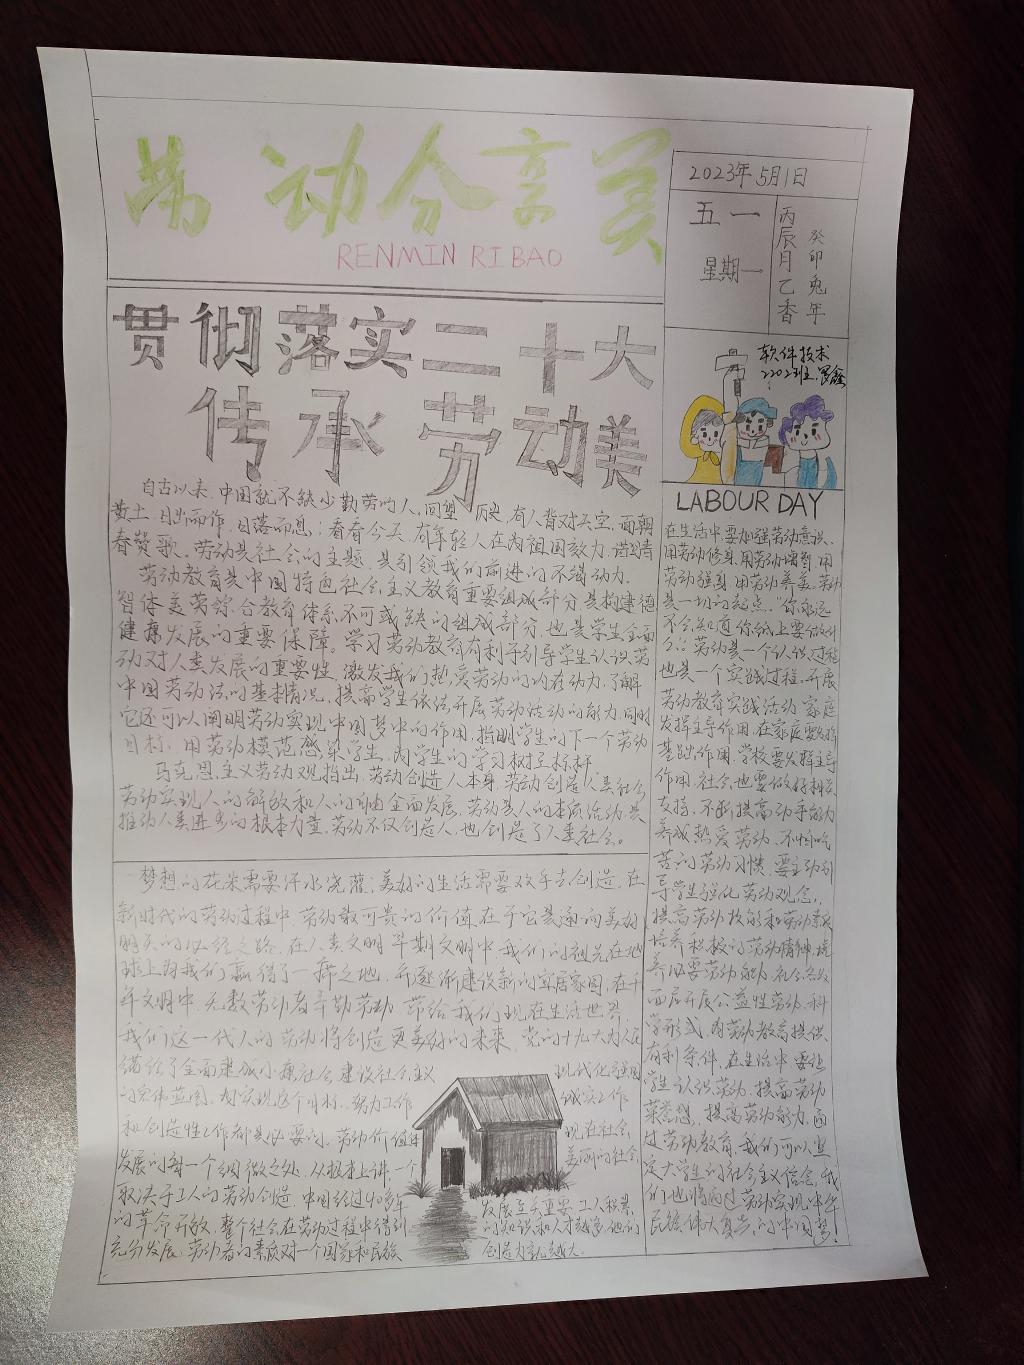 劳动分享美
RENMIN RI BAO
2023年5月1日
五一
星期一
丙辰月乙香
癸卯兔年
贯彻落实二十大
传承劳动美
软件技术
2202班
LABOUR DAY
自古以来,中国就不缺少勤劳的人,回望历史,有人背对天空,面朝
黄土,日出而作,日落而息;看看今天,有年轻人在为祖国效力,谱写青
春赞歌。劳动是社会的主题,是引领我们前进的不竭动力。
劳动教育是中国特色社会主义教育重要组成部分,是构建德
智体美劳综合教育体系不可或缺的组成部分,也是学生全面
健康发展的重要保障。学习劳动教育有利于引导学生认识劳
动对人类发展的重要性,激发我们热爱劳动的内在动力,了解
中国劳动法的基本情况,提高学生依法开展劳动活动的能力,同时
它还可以阐明劳动实现中国梦中的作用,指明学生的下一个劳动
目标,用劳动模范感染学生,为学生的学习树立标杆
马克思主义劳动观指出,劳动创造人本身,劳动创造人类社会
劳动实现人的解放和人的自由全面发展,劳动是人的本质活动,是
推动人类进步的根本力量,劳动不仅创造人,也创造了人类社会。
梦想的花朵需要汗水浇灌;美好的生活需要双手去创造,在
新时代的劳动过程中,劳动最可贵的价值在于它是通向美好
明天的必经之路,在人类文明早期文明中,我们的祖先在地
球上为我们赢得了一席之地,并逐渐建设新的宜居家园,在千
年文明中,无数劳动者辛勤劳动,带给我们现在生活世界,
我们这一代人的劳动将创造更美好的未来,党的十九大为人民
描绘了全面建成小康社会建设社会主义 现代化强国
的宏伟蓝图,为实现这个目标,努力工作 诚实工作
和创造性工作都是必要的,劳动价值在 现在社会
发展的每一个细微之处,从根本上讲,一个 美丽的社会,
取决于工人的劳动创造,中国经过40多年 发展至关重要,工人积累
的革命开放,整个社会在劳动过程中得到 的知识和人才越多,他们的
充分发展,劳动者的素质对一个国家和民族 创造力就越大。
在生活中,要加强劳动意识,
用劳动修身,用劳动增智,用
劳动强身,用劳动养美,劳动
是一切的起点,“你永远
不会知道你纸上要做什
么。劳动是一个认识过程
也是一个实践过程,开展
劳动教育实践活动,家庭
发挥主导作用,在家庭要发挥
基础作用,学校要发挥主导
作用,社会也要做好相关
支持,不断提高动手能力
养成热爱劳动、不怕吃
苦的劳动习惯,要主动引
导学生强化劳动观念,
提高劳动技能和劳动素质
培养积极的劳动精神,培
养必要劳动能力,社会各级
面应开展公益性劳动,科
学形式,为劳动教育提供
有利条件,在生活中要让
学生认识劳动,提高劳动
荣誉感,提高劳动能力,通
过劳动教育,我们可以坚
定大学生的社会主义信念,我
们也将通过劳动实现中华
民族伟大复兴的中国梦!